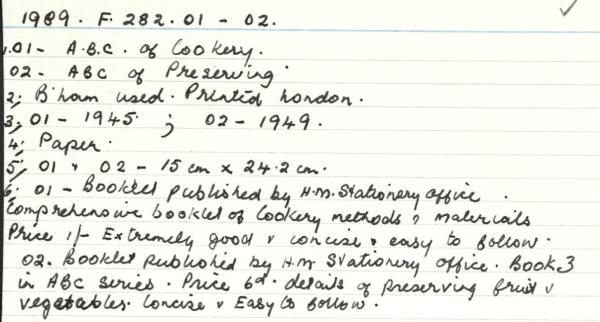 1989. F. 282. 01 - 02.
1. 01 - A.B.C. of Cookery.
02 - ABC of Preserving.
2; B'ham used. Printed London.
3; 01 - 1945 ; 02 - 1949.
4; Paper.
5; 01 & 02 - 15 cm x 24.2 cm.
6; 01 - Booklet published by H.M. Stationery office.
Comprehensive booklet of Cookery methods & materials
Price 1/- Extremely good & concise & easy to follow.
02. Booklet published by H.M. Stationery office. Book 3
in ABC series. Price 6d. details of preserving fruit &
vegetables. Concise & Easy to follow.